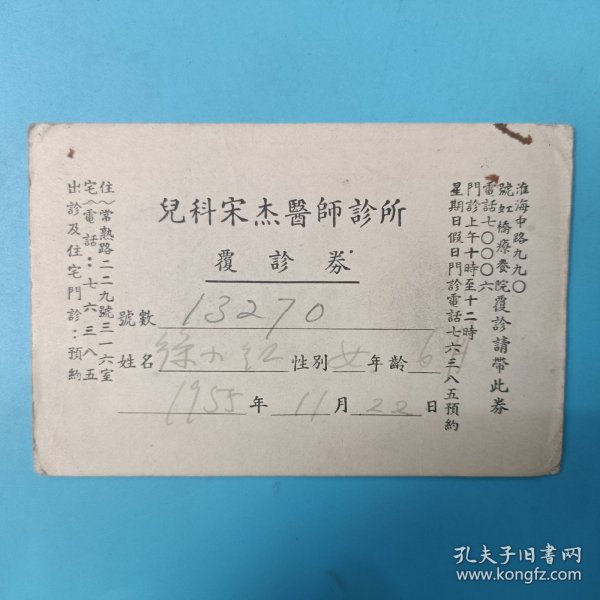 兒科宋杰醫師診所
覆診券
號數 13270
姓名 徐小红 性別 女 年齡 6
1955年11月22日
淮海中路九九〇
號虹橋療養院覆診請帶此券
電話七〇〇〇六
門診上午十時至十二時
星期日假日門診電話七六三八五預約
住(常熟路二二九號三一六室
宅(電話：七六三八五
出診及住宅門診：預約
孔夫子旧书网
www.kongfz.com